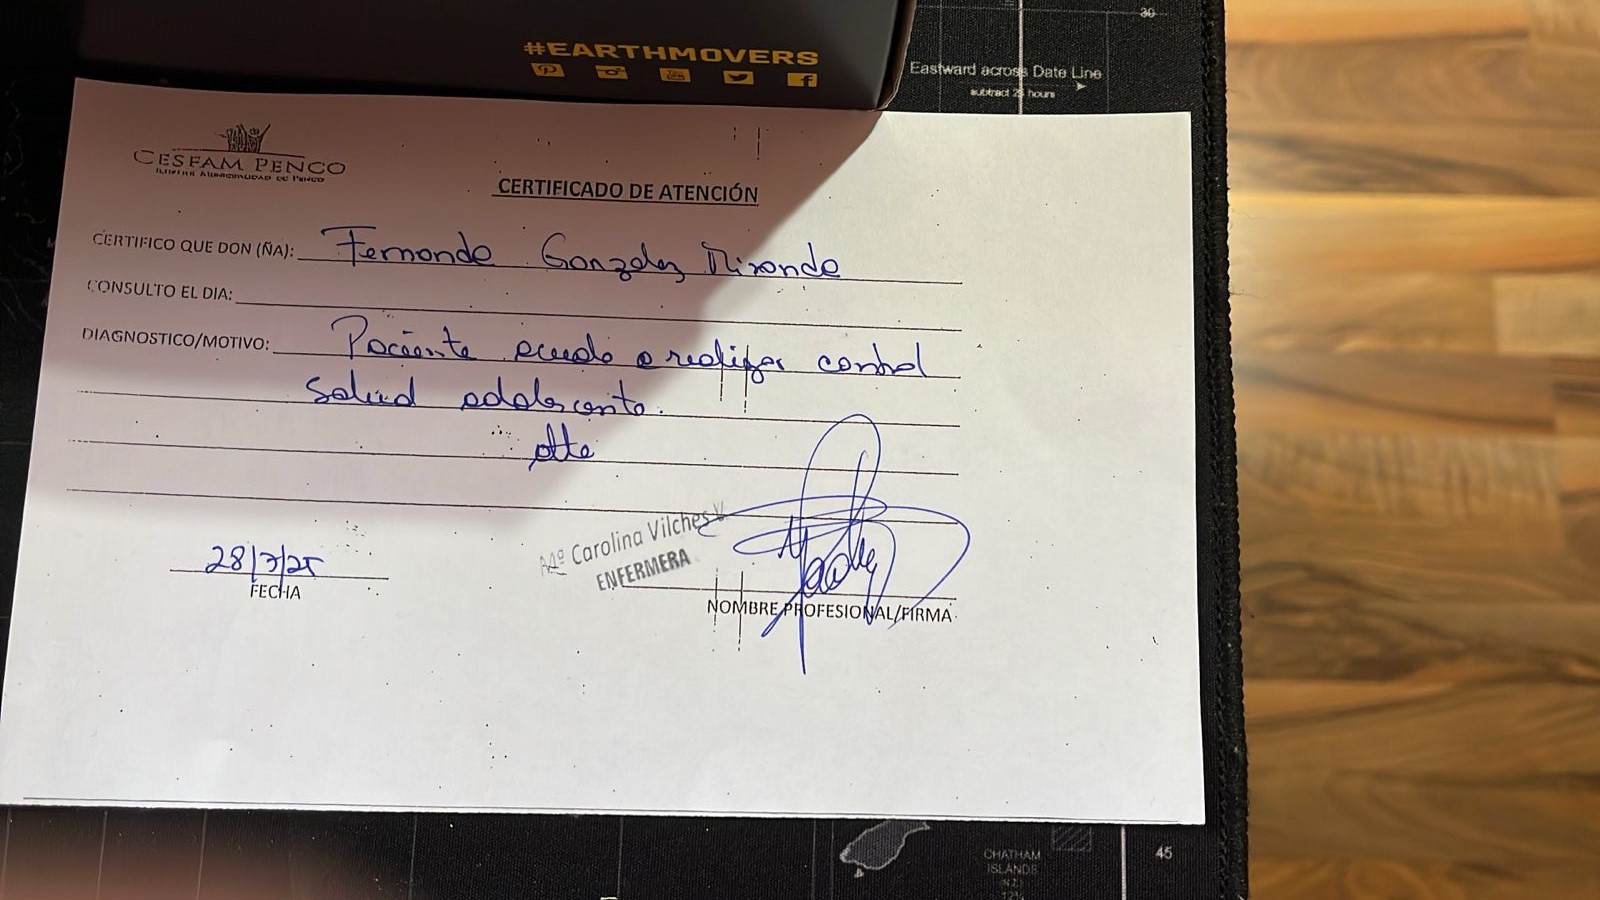 #EARTHMOVERS
Eastward across Date Line
subtract 24 hours
30
CESFAM PENCO
ILUSTRE MUNICIPALIDAD DE PENCO
CERTIFICADO DE ATENCIÓN
CERTIFICO QUE DON (ÑA): Fernando Gonzalez Miranda
CONSULTO EL DIA:
DIAGNOSTICO/MOTIVO: Paciente acude a realizar control
Salud adolescente.
atte
Mª Carolina Vilches V.
ENFERMERA
28/7/25
FECHA
NOMBRE PROFESIONAL/FIRMA
CHATHAM
ISLANDS
(N.Z.)
45